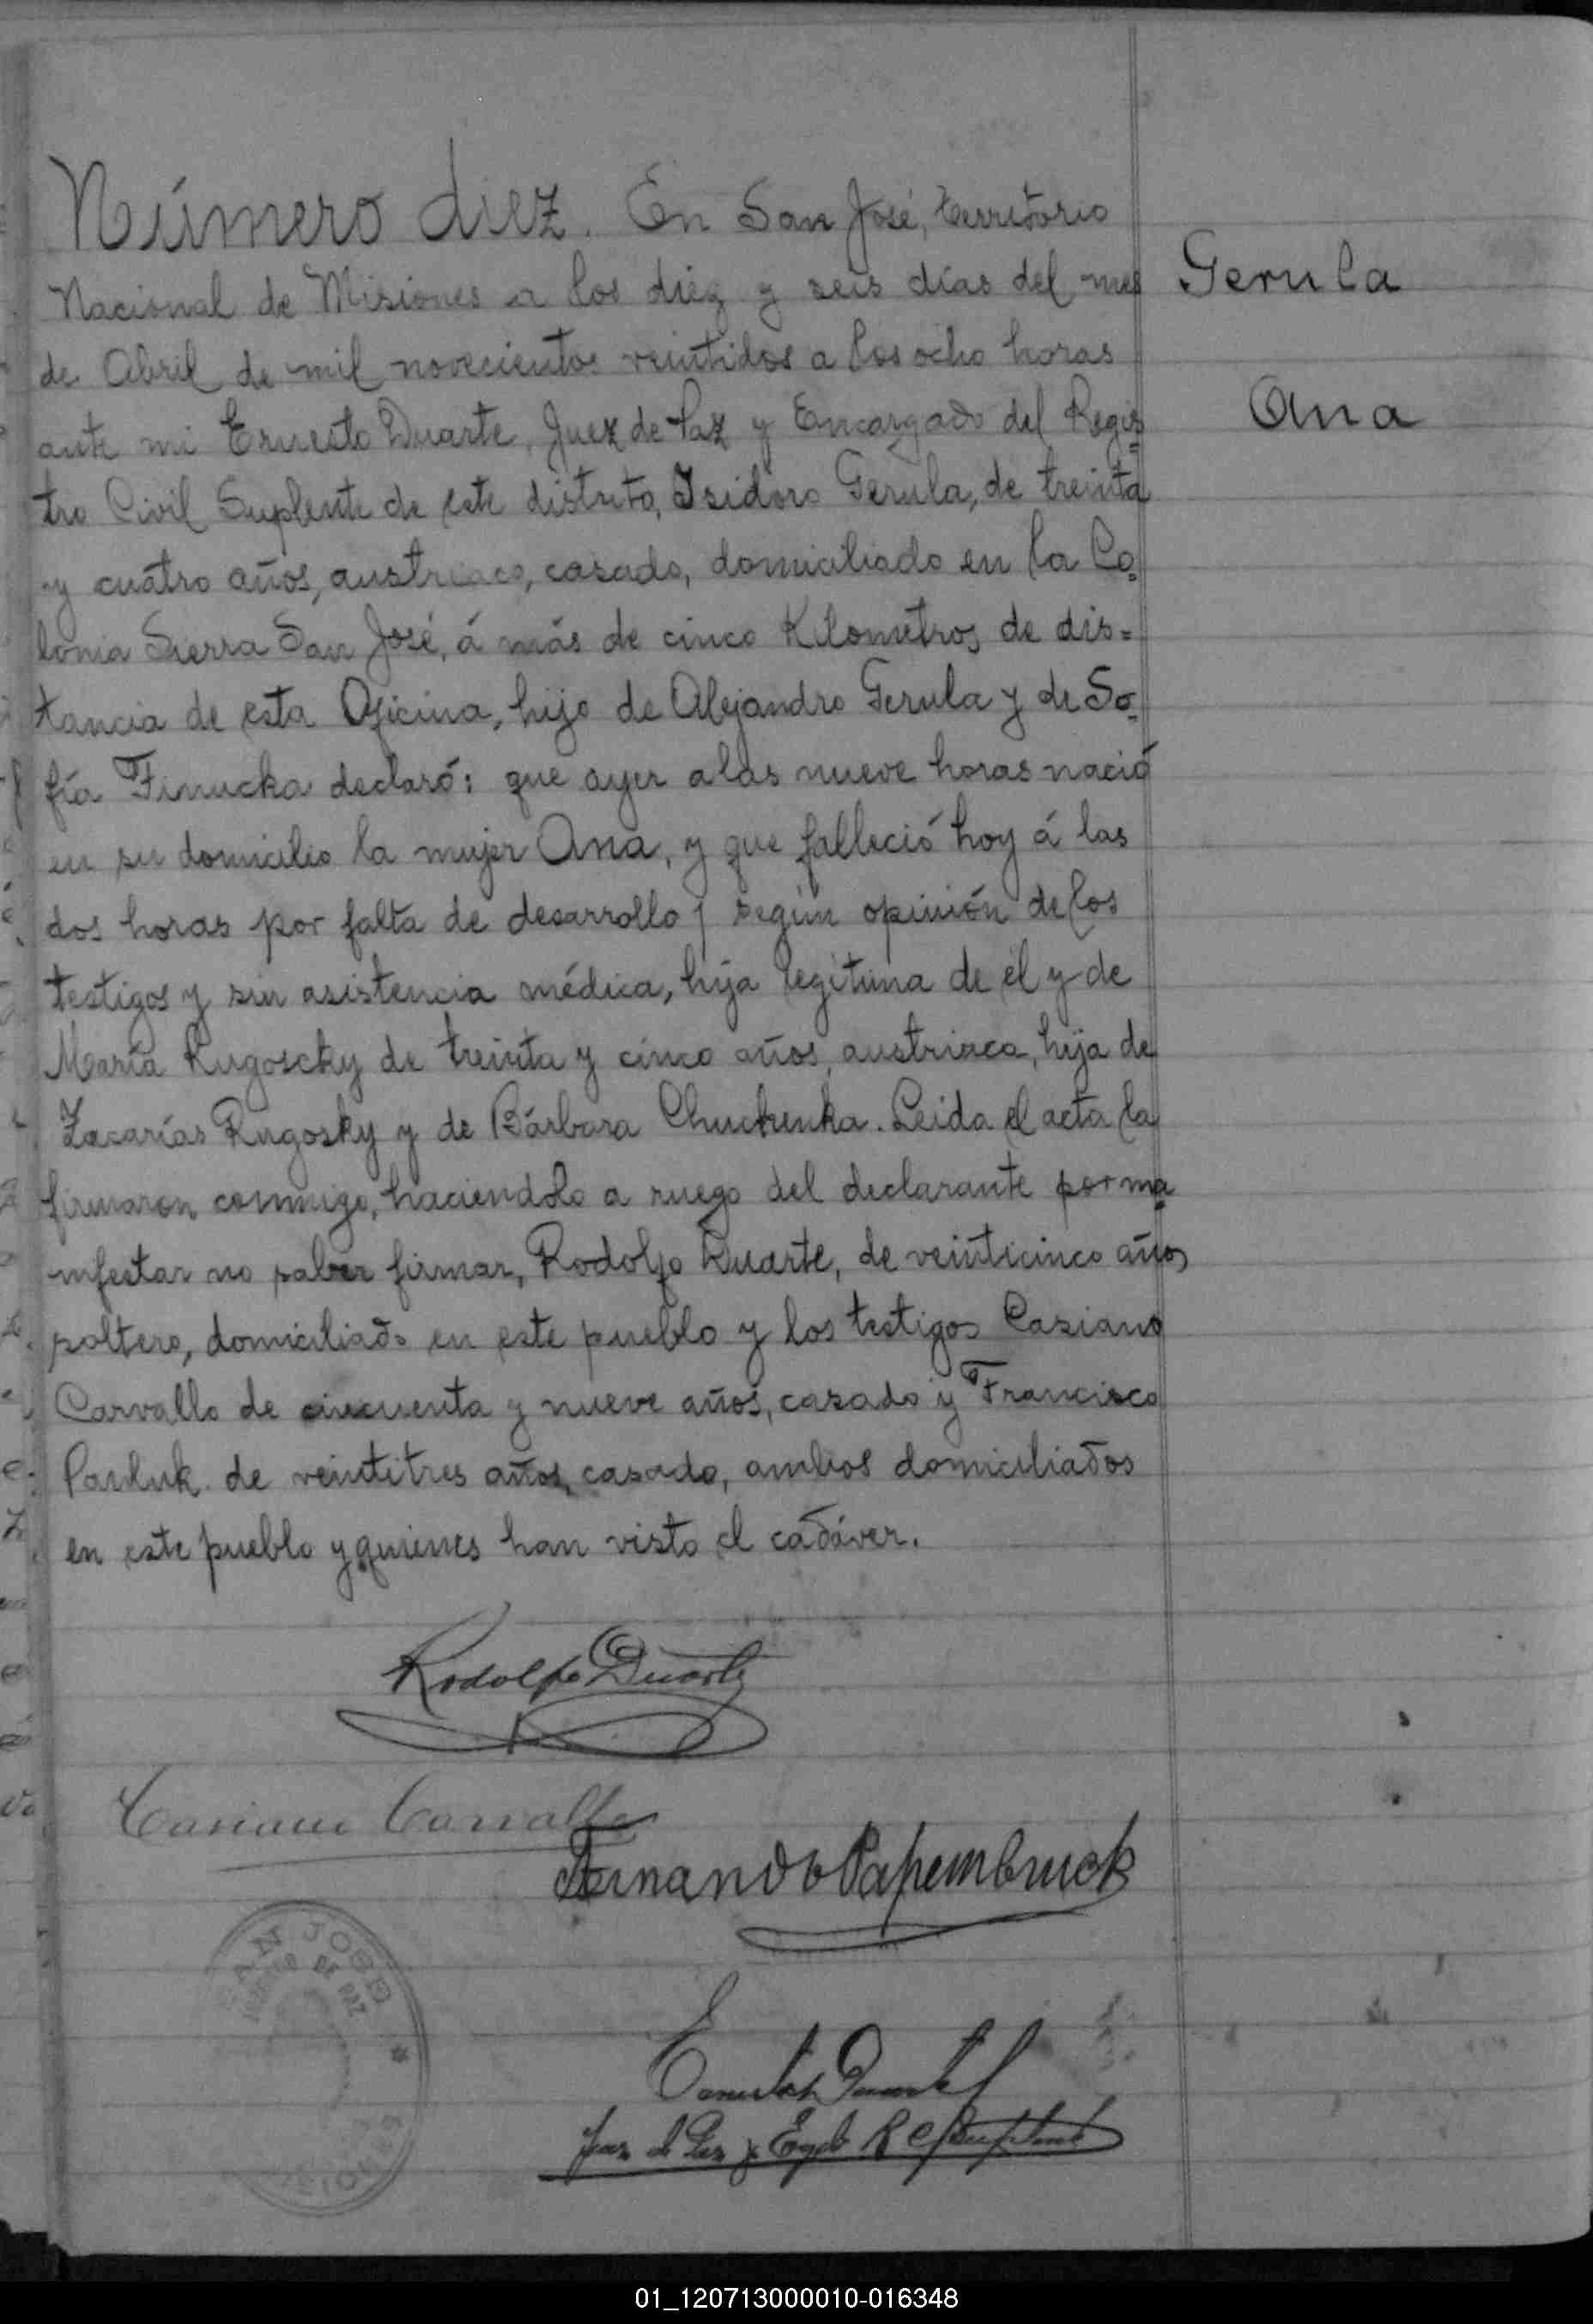 Número diez. En San José, territorio
Nacional de Misiones a los diez y seis días del mes
Gerula
de Abril de mil novecientos veintidos a las ocho horas
ante mi Ernesto Duarte, Juez de Paz y Encargado del Regis=
Ana
tro Civil Suplente de este distrito, Isidoro Gerula, de treinta
y cuatro años, austriaco, casado, domiciliado en la Co=
lonia Sierra San José, á más de cinco Kilometros de dis=
tancia de esta Oficina, hijo de Alejandro Gerula y de So=
fía Finucka declaró: que ayer a las nueve horas nació
en su domicilio la mujer Ana, y que falleció hoy á las
dos horas por falta de desarrollo, según opinión de los
testigos y sin asistencia médica, hija legitima de él y de
María Rugoscky de treinta y cinco años, austriaca, hija de
Zacarías Rugosky y de Bárbara Chuchenka. Leida el acta la
firmaron conmigo, haciendolo a ruego del declarante por ma=
nifestar no saber firmar, Rodolfo Duarte, de veinticinco años
soltero, domiciliado en este pueblo y los testigos Casiano
Carvallo de cincuenta y nueve años, casado y Francisco
Pauluk de veintitres años, casado, ambos domiciliados
en este pueblo y quienes han visto el cadáver.
Rodolfo Duarte
Casiano Carvallo
Fernando Papembruck
SAN JOSE
JUZGADO DE PAZ
MISIONES
Ernesto Duarte
Juez de Paz y Engdo R C Suplente
01_120713000010-016348